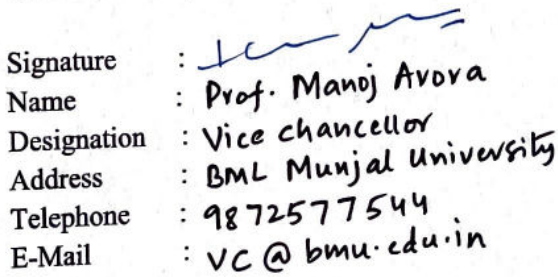 Signature :
Name : Prof. Manoj Arora
Designation : Vice chancellor
Address : BML Munjal University
Telephone : 9872577544
E-Mail : VC @ bmu.edu.in